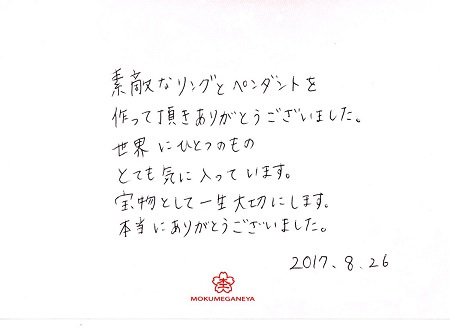 素敵なリングとペンダントを
作って頂きありがとうございました。
世界にひとつのもの
とても気に入っています。
宝物として一生大切にします。
本当にありがとうございました。
2017.8.26
MOKUMEGANEYA